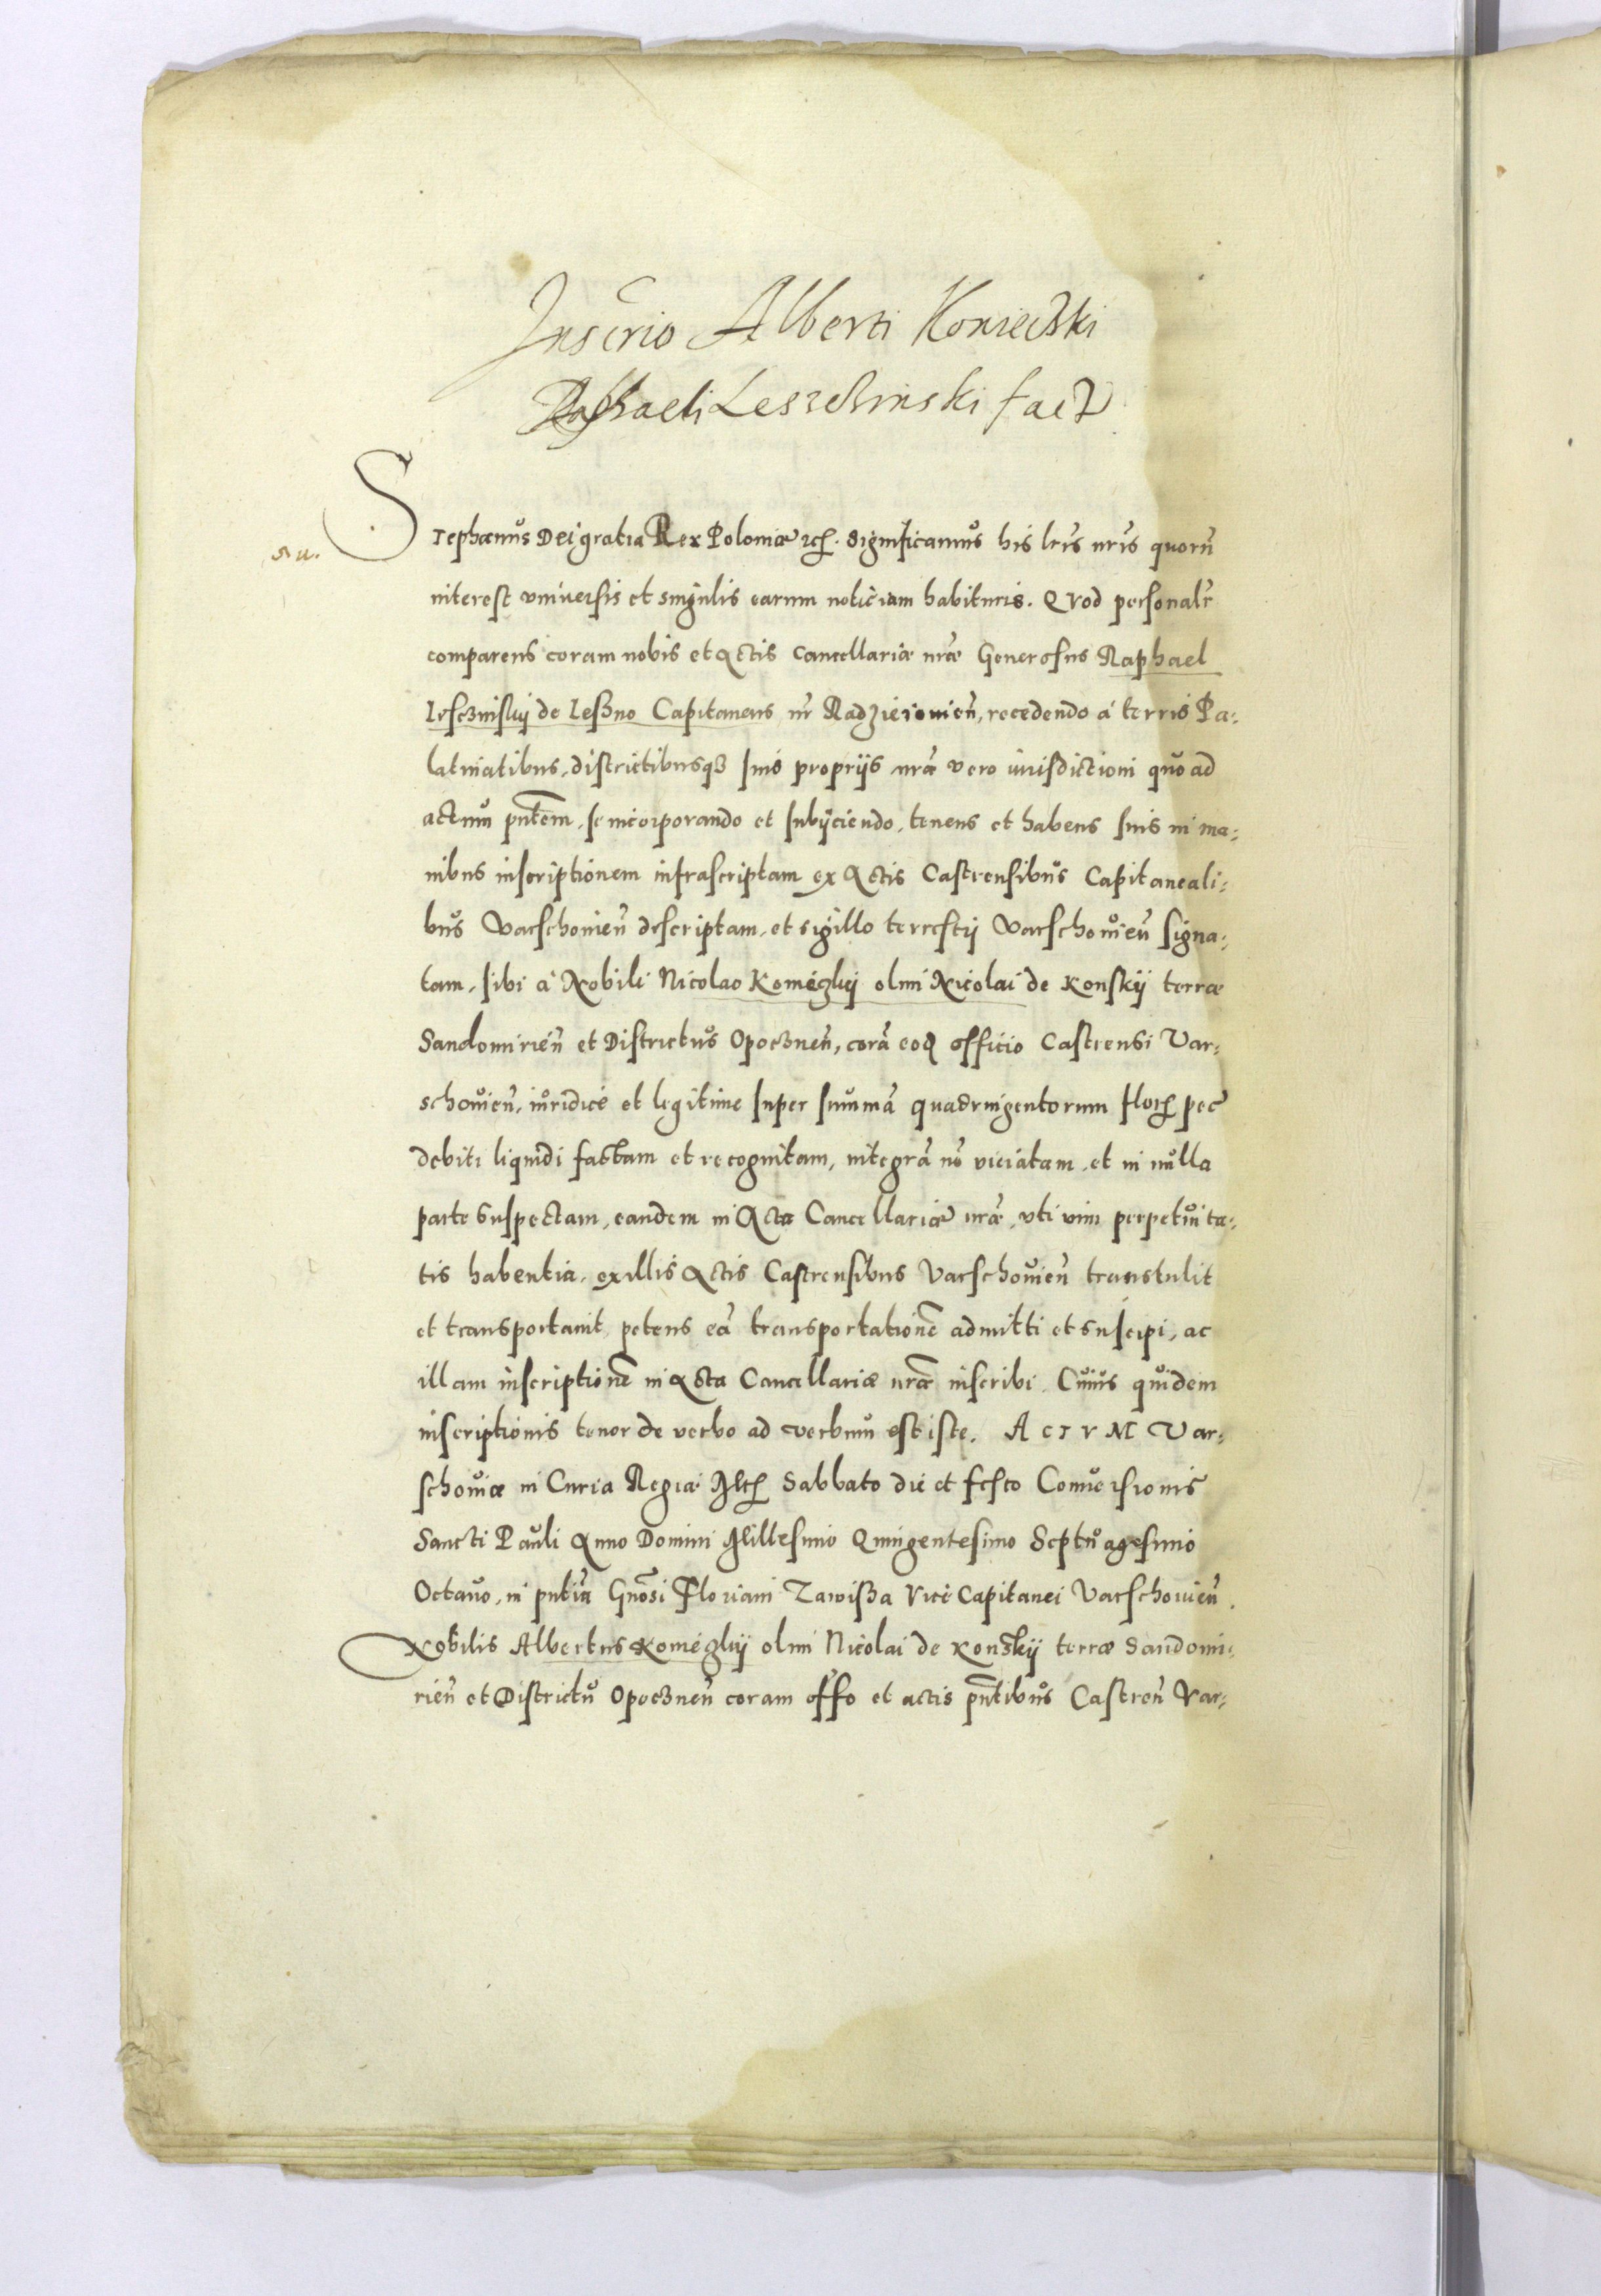 Inscrio Alberti Konieczki
Raphaeli Leszchinski fact
Stephanus Dei gratia Rex Poloniæ etc. Significamus his lris nris quorū
interest vniuersis et singulis earum noticiam habituris. Quod personalr
comparens coram nobis et Actis Cancellariæ nræ Generosus Raphael
Lesczinskij de Leßno Capitaneus nr Radzieiouien̄, recedendo á terris Pa-
latinatibus, districtibusqz suis proprijs nræ vero iurisdictioni quo ad
actum pn̄tem, se incorporando et subijciendo, tenens et habens suis in ma-
nibus inscriptionem infrascriptam ex Actis Castrensibus Capitaneali-
bus Varschouien̄ descriptam, et sigillo terrestij Varschouien̄ signa-
tam, sibi á Nobili Nicolao olmi Nicolai de Konskij terræ
Sandomirien̄ et Districtus Opocznen̄, corā eod officio Castrensi Var-
schouien̄, iuridicé et legitime super summā quadringentorum flor pec
debiti liquidi factam et recognitam, integrā nō viciatam, et in nulla
parte suspectam, eandem in Acta Cancellariæ nræ, vti vim perpetuita-
tis habentia, ex illis Actis Castrensibus Varschouien̄ transtulit
et transportauit, petens eā transportationē admitti et suscipi, ac
illam inscriptionē in Acta Cancellariæ nræ inscribi. Cuius quidem
inscriptionis tenor de verbo ad verbum est iste. ACTVM Var-
schouiæ in Curia Regia Sabbato die et festo Conuersionis
Sancti Pauli Anno Domini Millesimo Quingentesimo Septuagesimo
Octauo, in pn̄tia Gnōsi Floriani Zawißa Vice Capitanei Varschouien̄.
Nobilis Albertus olmi Nicolai de Konskij terræ Sandomi-
rien̄ et Districtu Opocznen̄ coram offo et actis pn̄tibus Castren̄ Var-